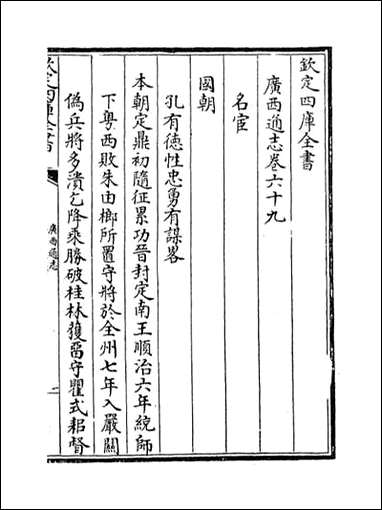 欽定四庫全書
廣西通志卷六十九
名宦
國朝
孔有德性忠勇有謀畧
本朝定鼎初隨征累功晉封定南王順治六年統師
下粤西敗朱由榔所置守將於全州七年入嚴關
偽兵將多潰乞降乗勝破桂林獲留守瞿式耜督
欽定四庫全書
廣西通志
一